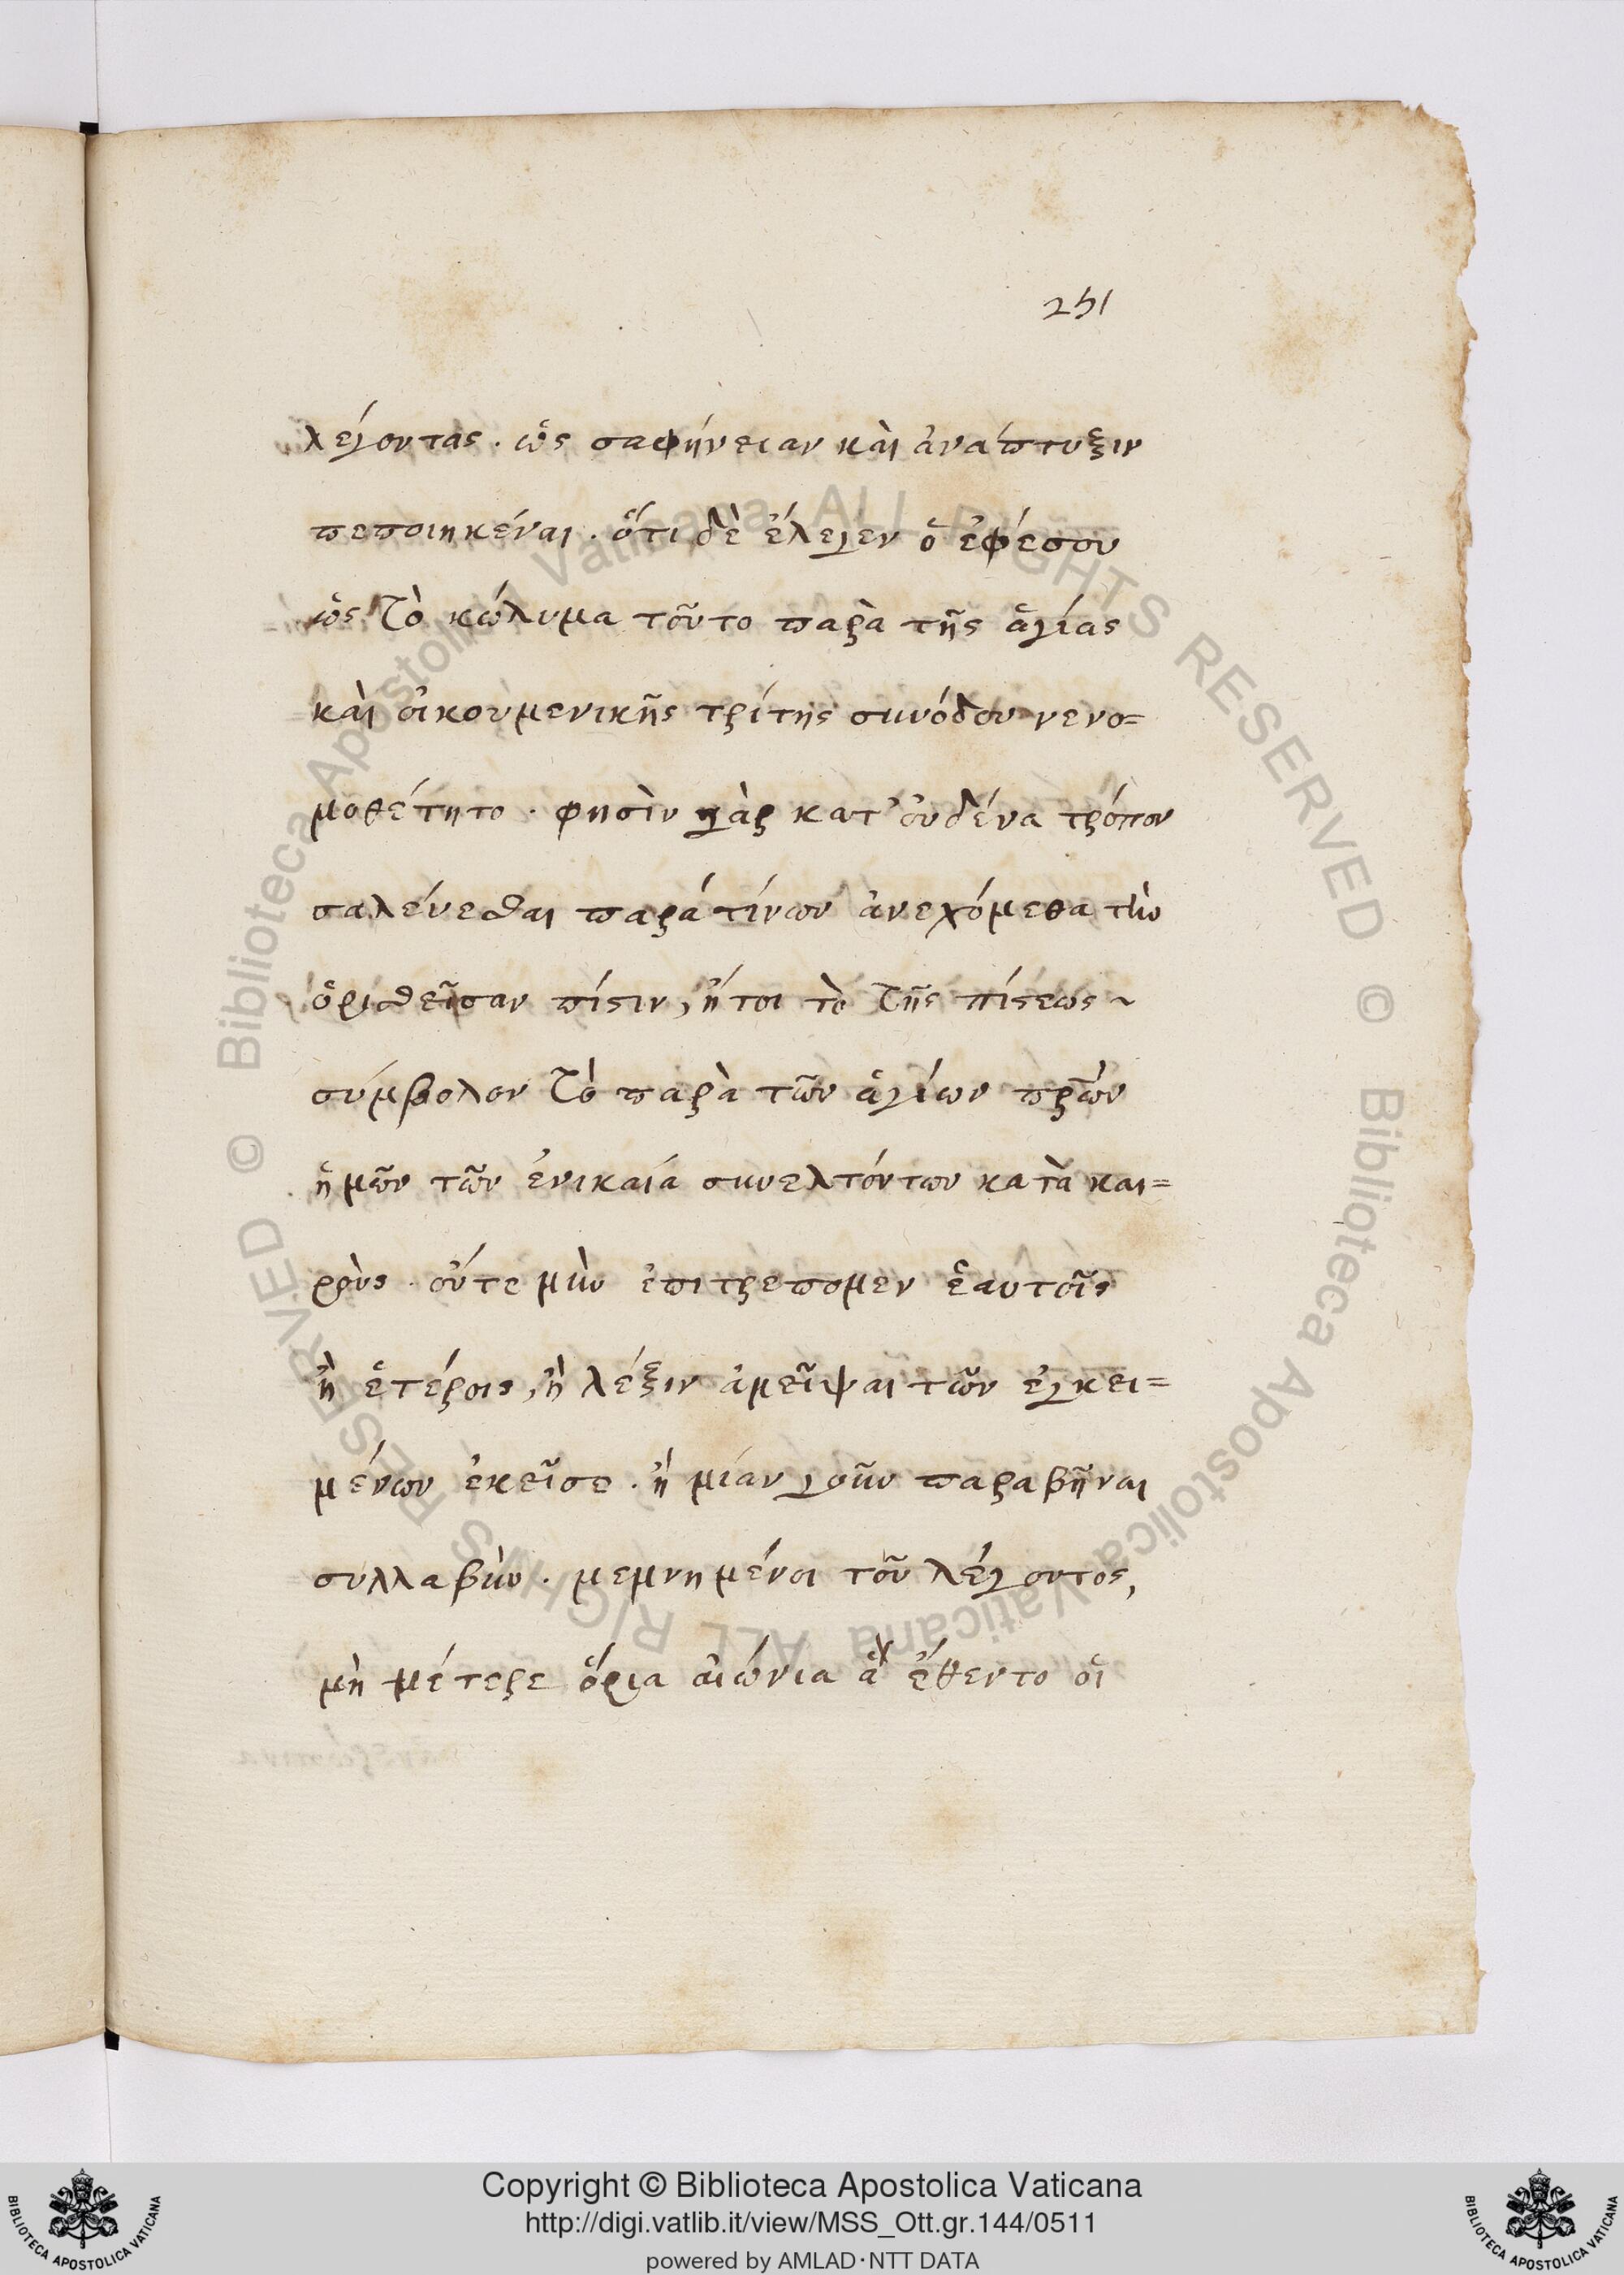 251
λέγοντας. ὡς σαφήνειαν καὶ ἀνάπτυξιν
πεποιηκέναι. ὅτι δὲ ἔλεγεν ὁ ἐφέσου
ὡς τὸ κώλυμα τοῦτο παρὰ τῆς ἁγίας
καὶ οἰκουμενικῆς τρίτης συνόδου νενο=
μοθέτητο. φησὶν γὰρ κατ' οὐδένα τρόπον
σαλεύεσθαι παρά τίνων ἀνεχόμεθα τὴν
ὁρισθεῖσαν πίστιν, ἤτοι τὸ τῆς πίστεως ~
σύμβολον τὸ παρὰ τῶν ἁγίων πρῶν
ἡμῶν τῶν ἐνικαία συνελτόντων κατὰ και=
ροὺς. οὔτε μὴν ἐπιτρεπομεν ἑαυτοῖς
ἢ ἑτέροις, ἢ λέξιν ἀμεῖψαι τῶν ἐγκει=
μένων ἐκεῖσε. ἢ μίαν γοῦν παραβῆναι
συλλαβὴν. μεμνημένοι τοῦ λέγοντος,
μὴ μέτερε ὅρια αἰώνια ἃ ἔθεντο οἱ
© Biblioteca Apostolica Vaticana ALL RIGHTS RESERVED © Biblioteca Apostolica Vaticana ALL RIGHTS RESERVED
Copyright © Biblioteca Apostolica Vaticana
http://digi.vatlib.it/view/MSS_Ott.gr.144/0511
powered by AMLAD·NTT DATA
BIBLIOTECA APOSTOLICA VATICANA
BIBLIOTECA APOSTOLICA VATICANA